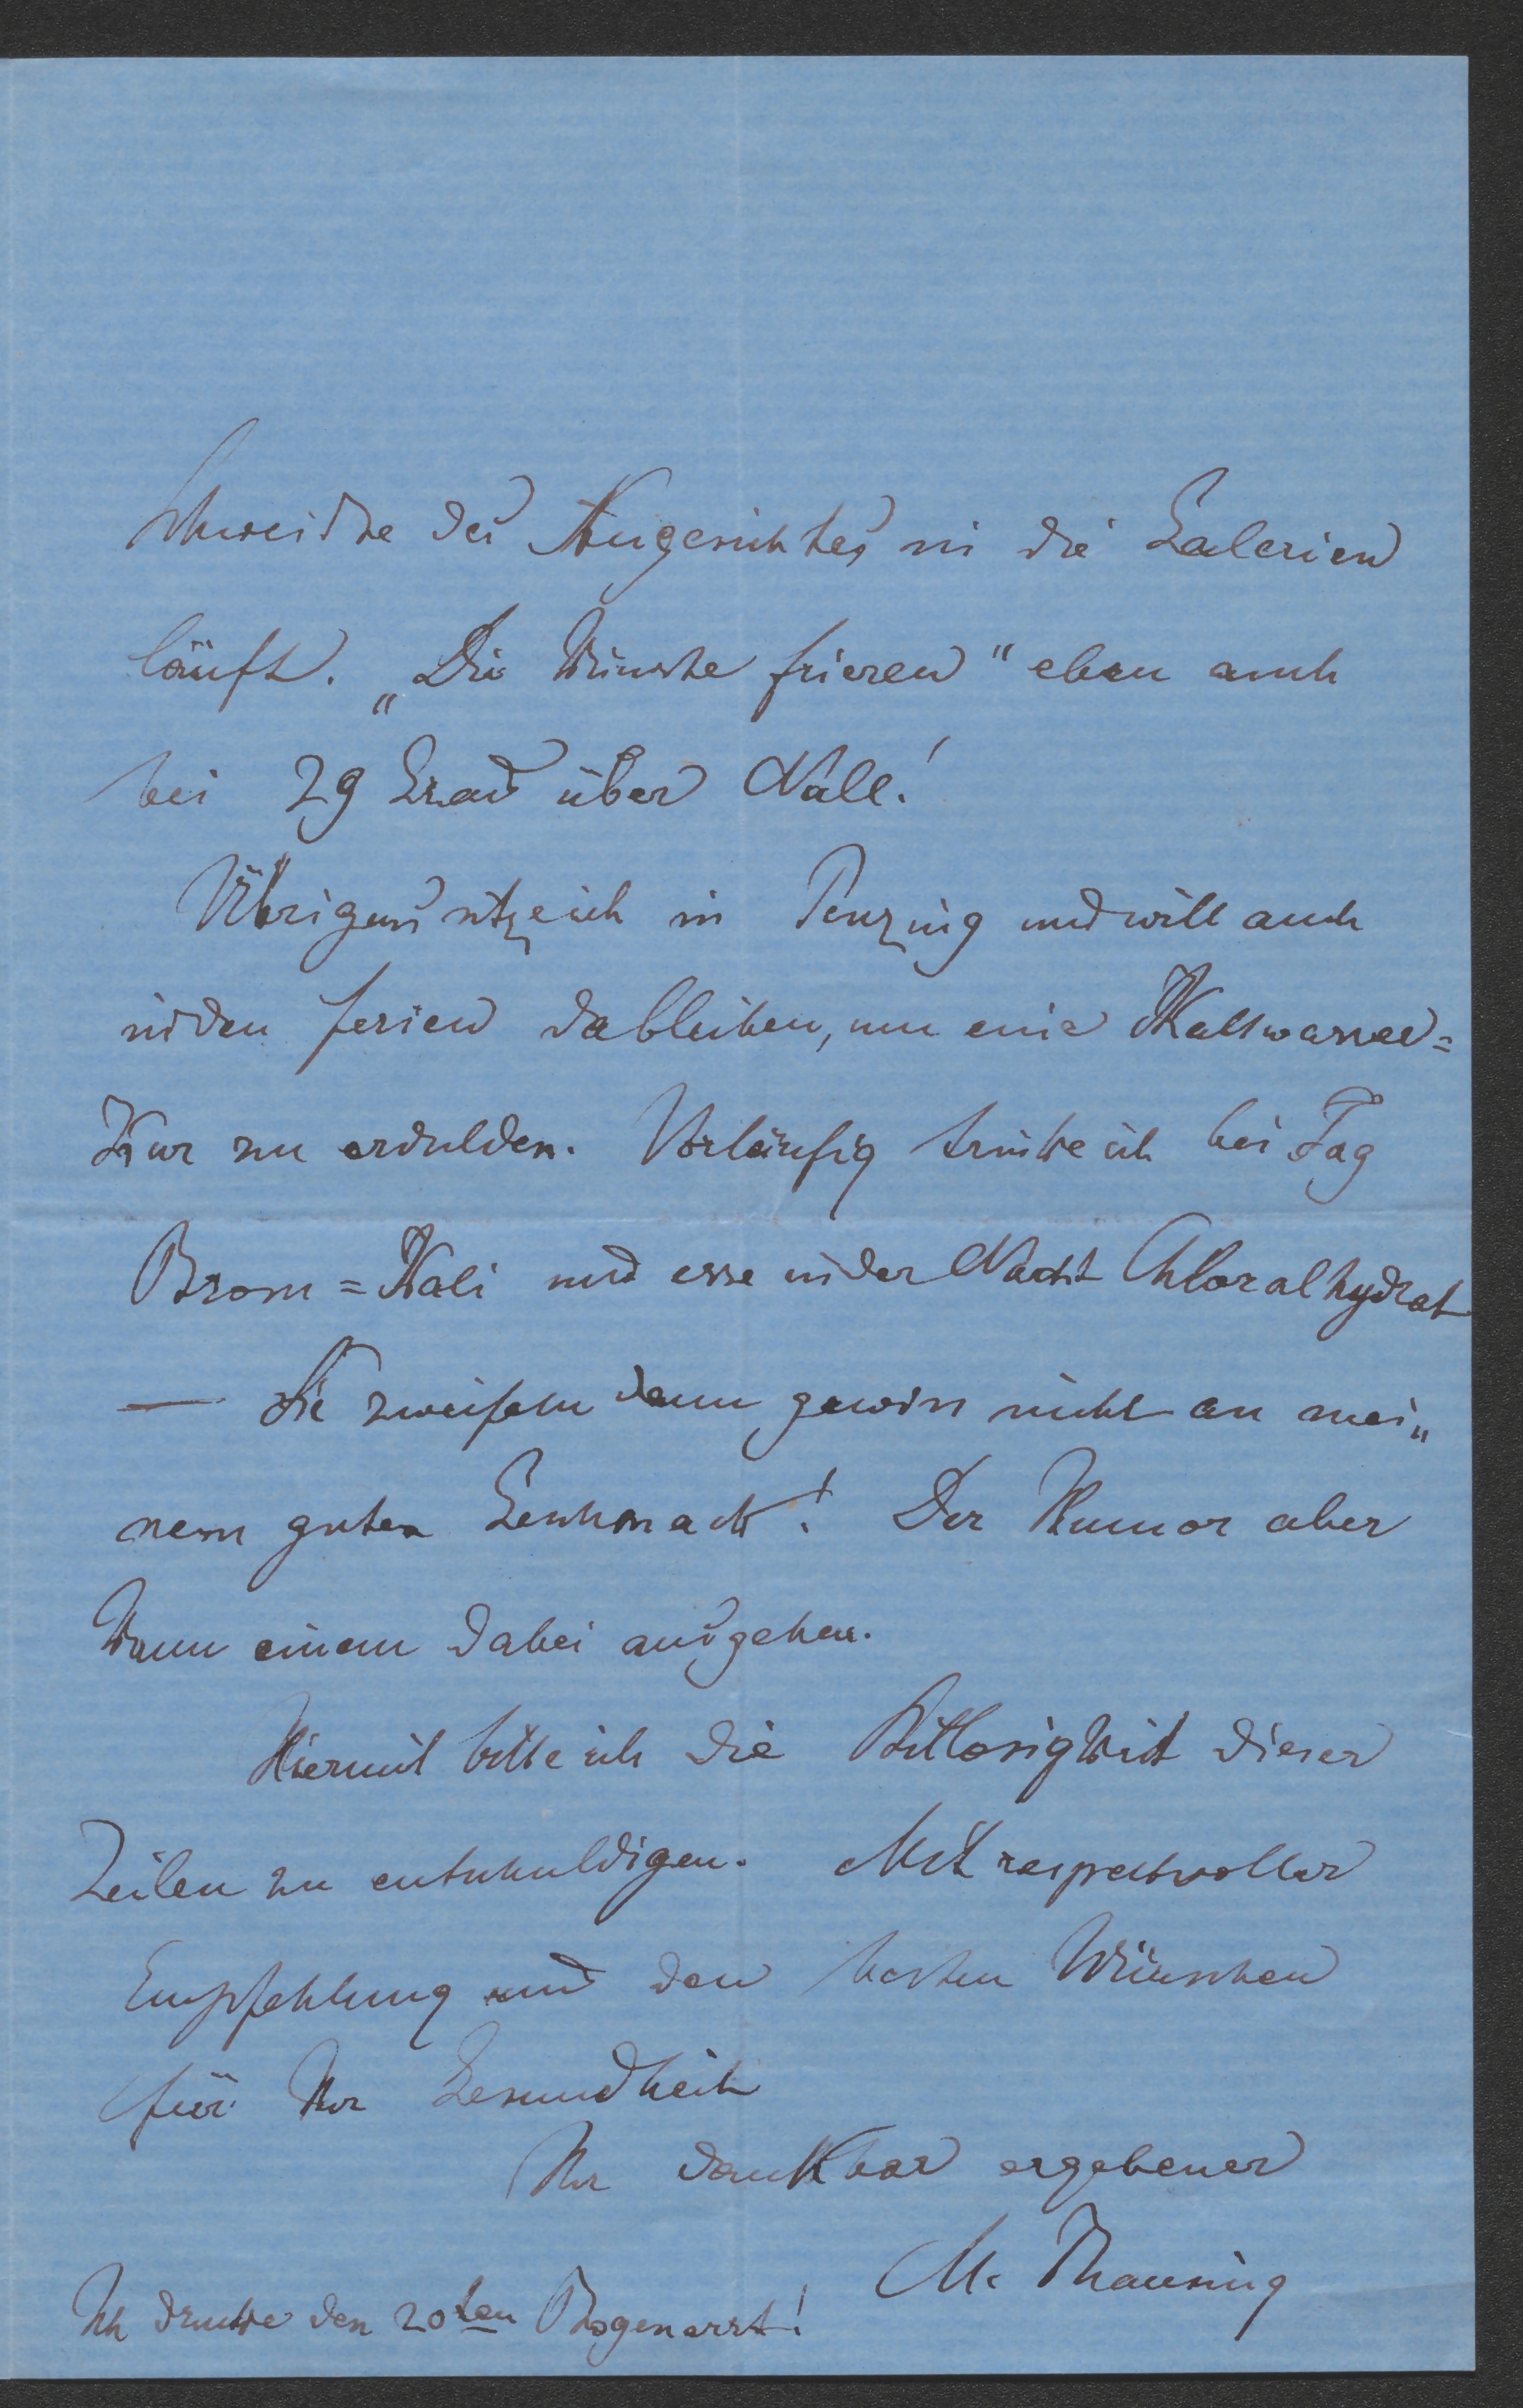 Schweiße des Angesichtes in die Galerien
läuft. „Die Künste frieren" eben auch
bei 29 Grad über Null!
Übrigens sitze ich in Penzing und will auch
in den Ferien dableiben, um eine Kaltwasser=
Kur zu erdulden. Vorläufig trinke ich bei Tag
Brom=Kali und esse in der Nacht Chloralhydrat
— Sie zweifeln dann gewiss nicht an mei„
nem guten Geschmack! Der Humor aber
kann einem dabei ausgehen.
Hiermit bitte ich die Stillosigkeit dieser
Zeilen zu entschuldigen. Mit respectvoller
Empfehlung und den besten Wünschen
für Ihr Gesundheit
Ihr dankbar ergebener
M. Thausing
Ich drucke den 20ten Bogen erst!